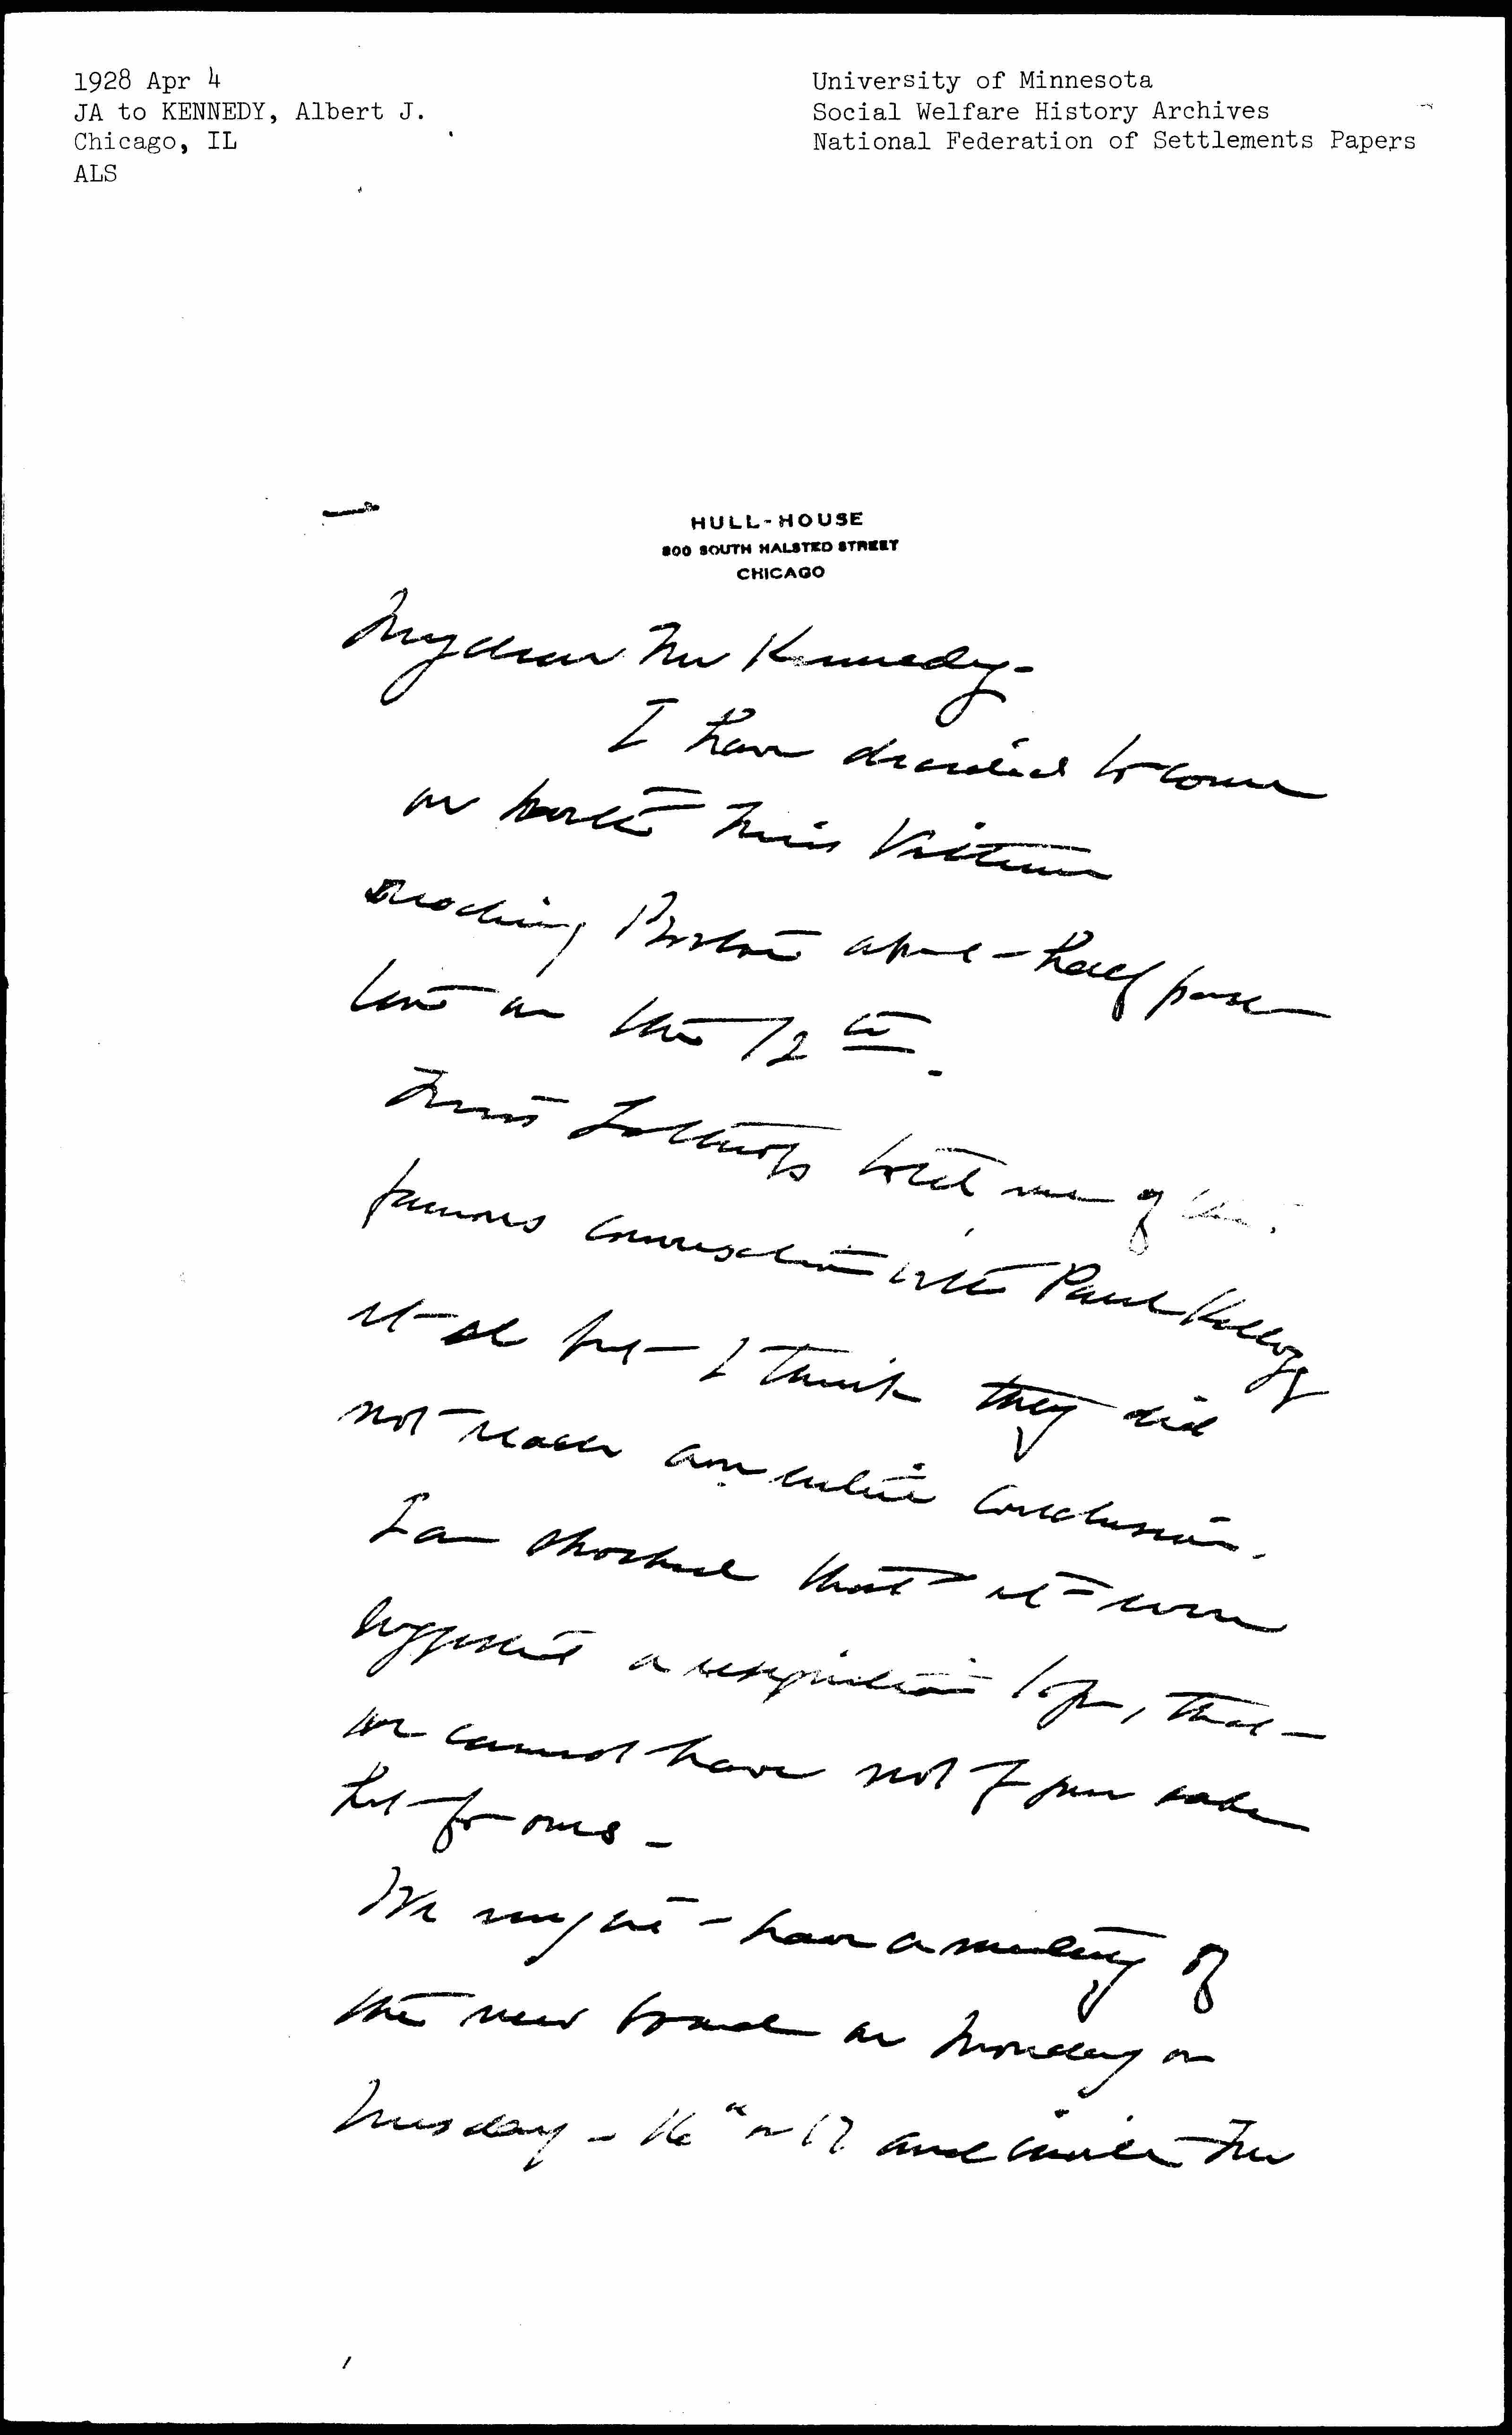 1928 Apr 4
JA to KENNEDY, Albert J.
Chicago, IL
ALS
University of Minnesota
Social Welfare History Archives
National Federation of Settlements Papers
HULL-HOUSE
800 SOUTH HALSTED STREET
CHICAGO
My dear Mr Kennedy-
I have decided to come
on with Miss Vittum
reaching Boston about half past
ten on the 12th.
Miss Lathrop told me of the
famous conversation with Paul Kellogg
et al but I think they did
not reach any conclusion.
I am shocked that it even
suggested a resignation to you, that
we cannot have not for your sake
but for ours -
We might have a meeting of
the new board on Monday or
Tuesday - 16" or 17 and invite Mr